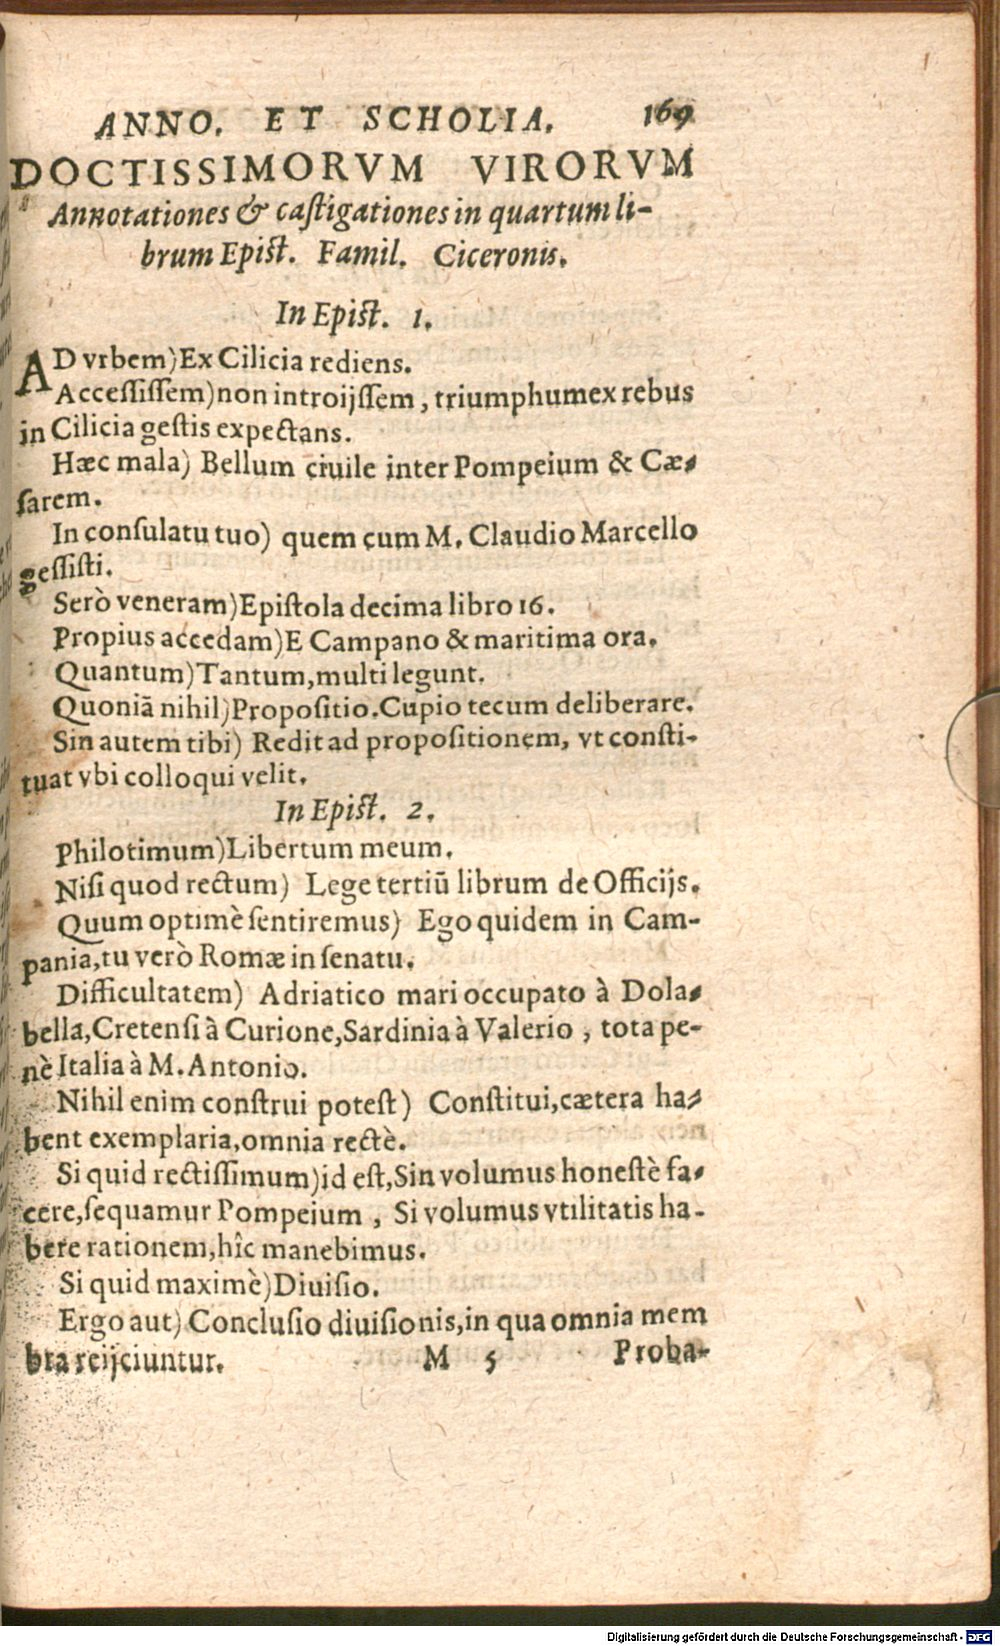 ANNO. ET SCHOLIA. 169
DOCTISSIMORVM VIRORVM
Annotationes & castigationes in quartum li-
brum Epist. Famil. Ciceronis.
In Epist. 1.
AD vrbem) Ex Cilicia rediens.
Accessissem) non introijssem, triumphum ex rebus
in Cilicia gestis expectans.
Hæc mala) Bellum ciuile inter Pompeium & Cæ-
sarem.
In consulatu tuo) quem cum M. Claudio Marcello
gessisti.
Serò veneram) Epistola decima libro 16.
Propius accedam) E Campano & maritima ora.
Quantum) Tantum, multi legunt.
Quoniã nihil) Propositio. Cupio tecum deliberare.
Sin autem tibi) Redit ad propositionem, vt consti-
tuat vbi colloqui velit.
In Epist. 2.
Philotimum) Libertum meum.
Nisi quod rectum) Lege tertiũ librum de Officijs.
Quum optimè sentiremus) Ego quidem in Cam-
pania, tu verò Romæ in senatu.
Difficultatem) Adriatico mari occupato à Dola-
bella, Cretensi à Curione, Sardinia à Valerio, tota pe-
nè Italia à M. Antonio.
Nihil enim construi potest) Constitui, cætera ha-
bent exemplaria, omnia rectè.
Si quid rectissimum) id est, Sin volumus honestè fa-
cere, sequamur Pompeium, Si volumus vtilitatis ha-
bere rationem, hîc manebimus.
Si quid maximè) Diuisio.
Ergo aut) Conclusio diuisionis, in qua omnia mem
bra reijciuntur. M 5 Proba-
Digitalisierung gefördert durch die Deutsche Forschungsgemeinschaft - DFG